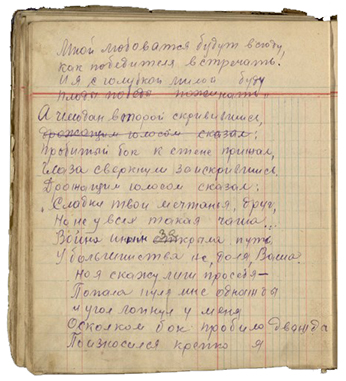 Мной любоватся будут всюду,
как победителя встречать.
И я с голубкой милой буду
Плоды пожинать.
А чемодан второй скрививши̶сь,
Дрожащим голосом сказал:
Пробитый бок к стене прижал,
Глаза сверкнули заискрившись,
Дрожащим голосом сказал:
„Сладки твои мечтания, друг,
Но не у всех такая чаша...
Война иным закрыла путь,
У большинства не доля Ваша.
но я скажу лиш про себя —
Попала пуля мне однажда
и угол лопнул у меня
Осколком бок пробило дважда
Поизносился крепко я